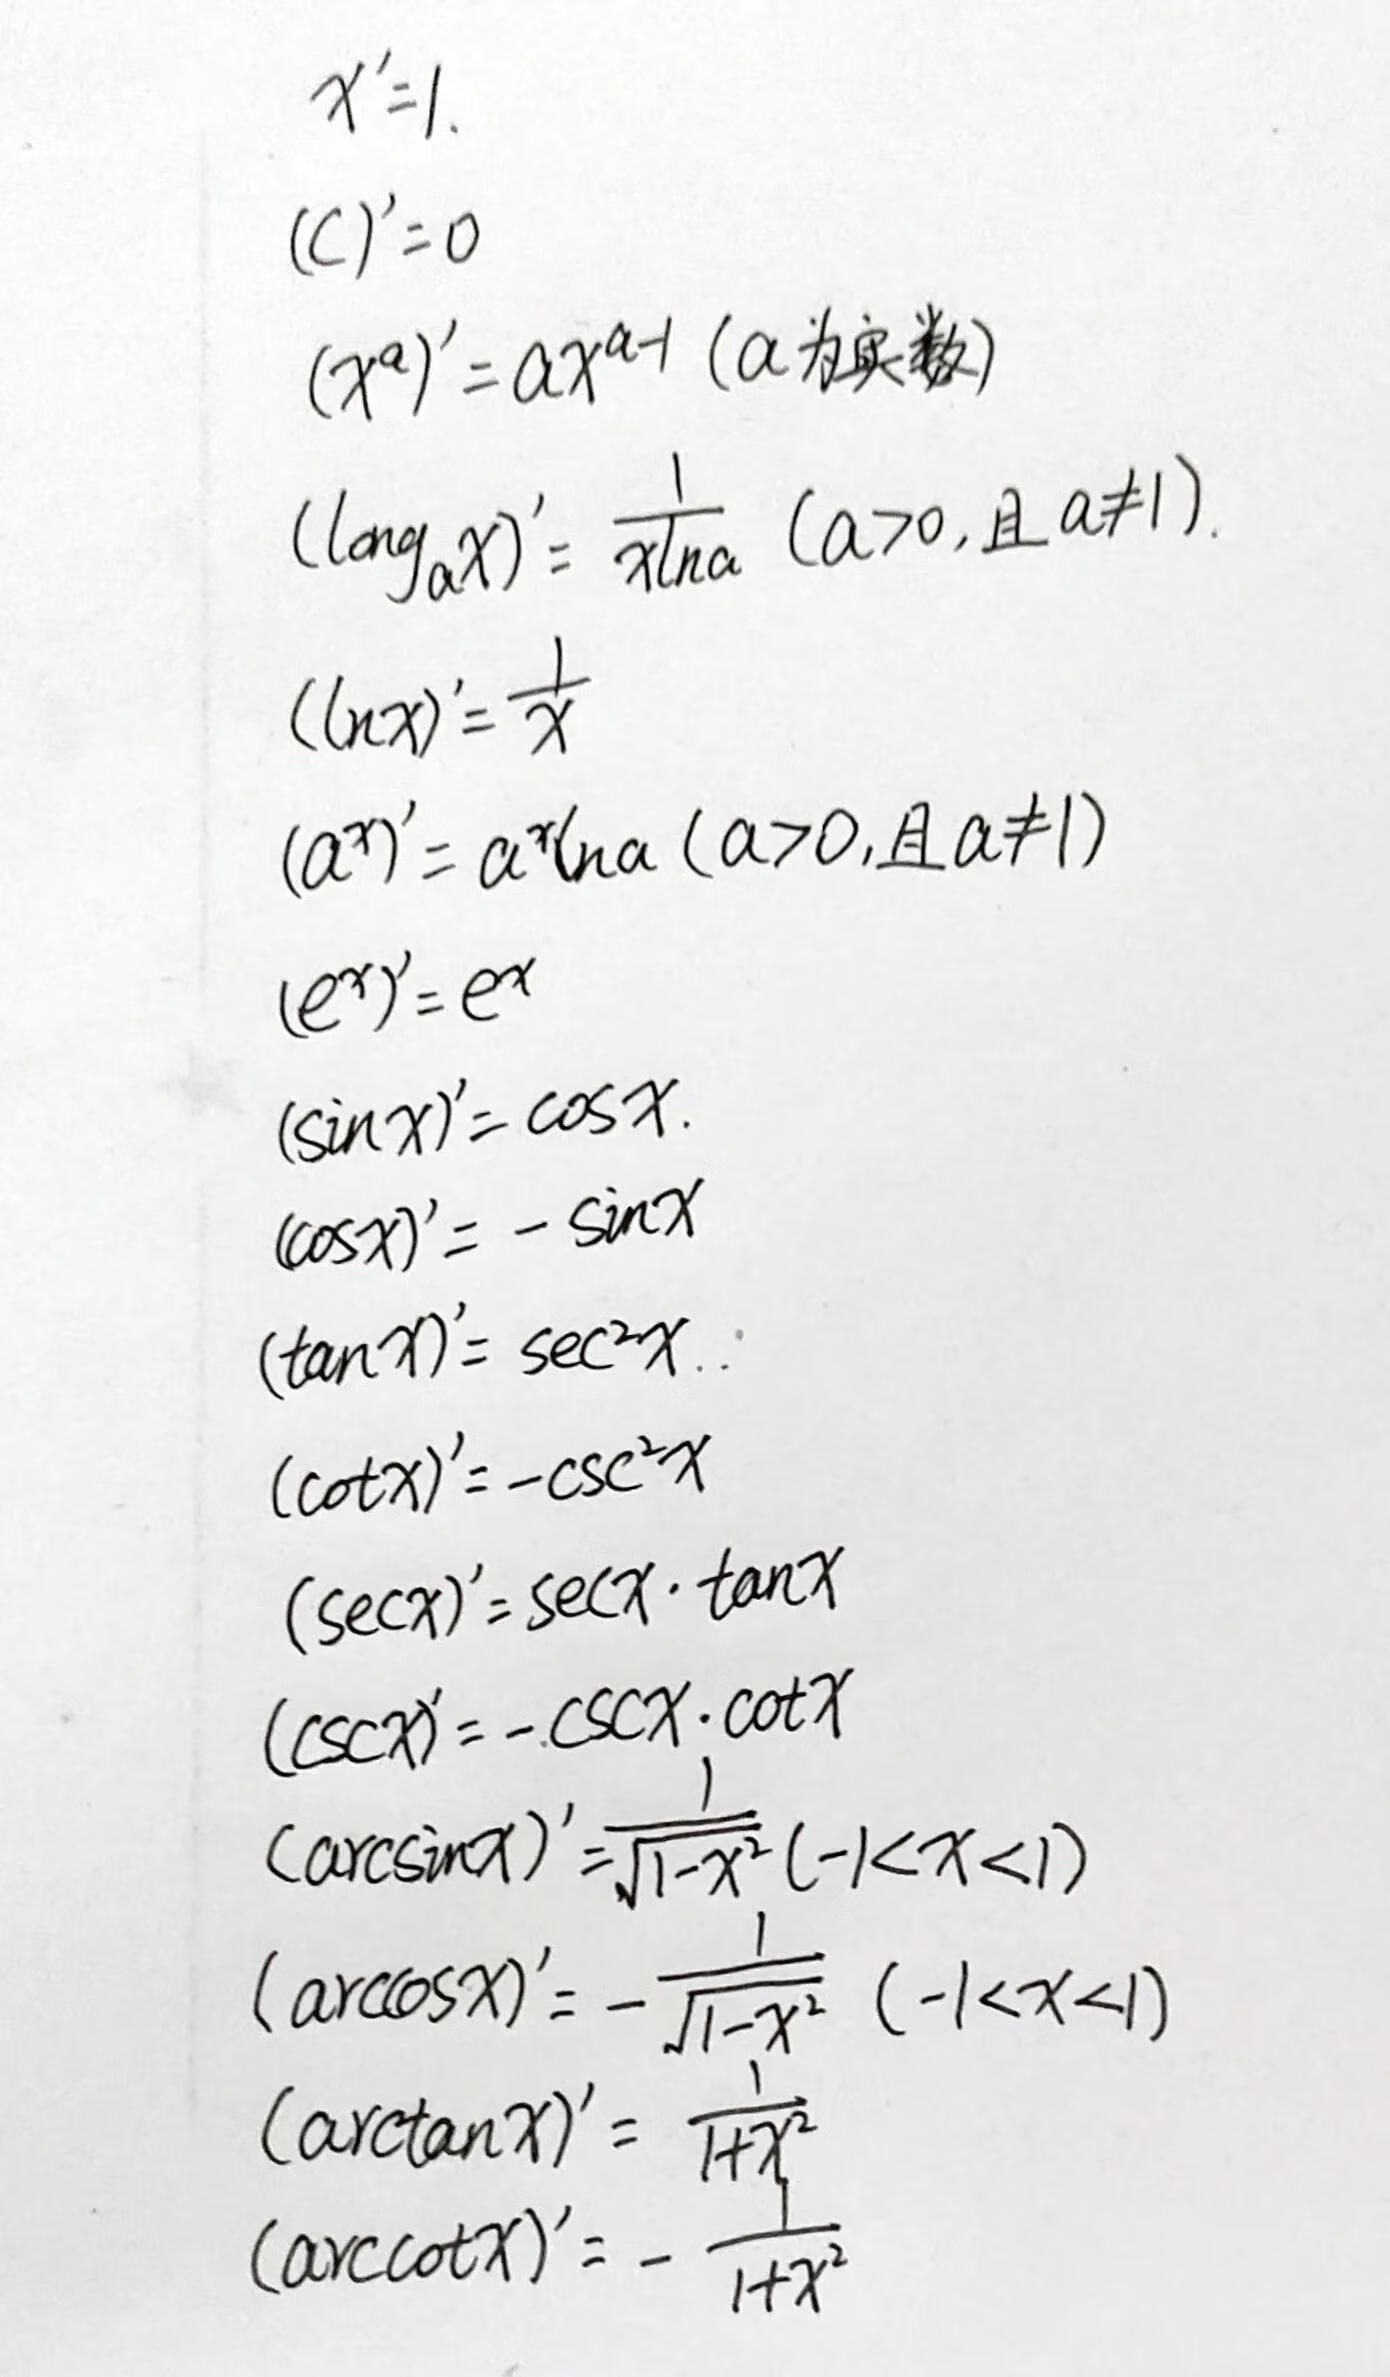 x′=1.
(C)′=0
(xᵃ)′=axᵃ⁻¹ (a为实数)
(longₐx)′= 1/(xlna) (a>0,且a≠1).
(lnx)′= 1/x
(aˣ)′=aˣlna (a>0,且a≠1)
(eˣ)′=eˣ
(sinx)′=cosx.
(cosx)′= -sinx
(tanx)′= sec²x..
(cotx)′= -csc²x
(secx)′=secx·tanx
(cscx)′= -cscx·cotx
(arcsinx)′= 1/√(1-x²) (-1<x<1)
(arccosx)′= - 1/√(1-x²) (-1<x<1)
(arctanx)′= 1/(1+x²)
(arccotx)′= - 1/(1+x²)